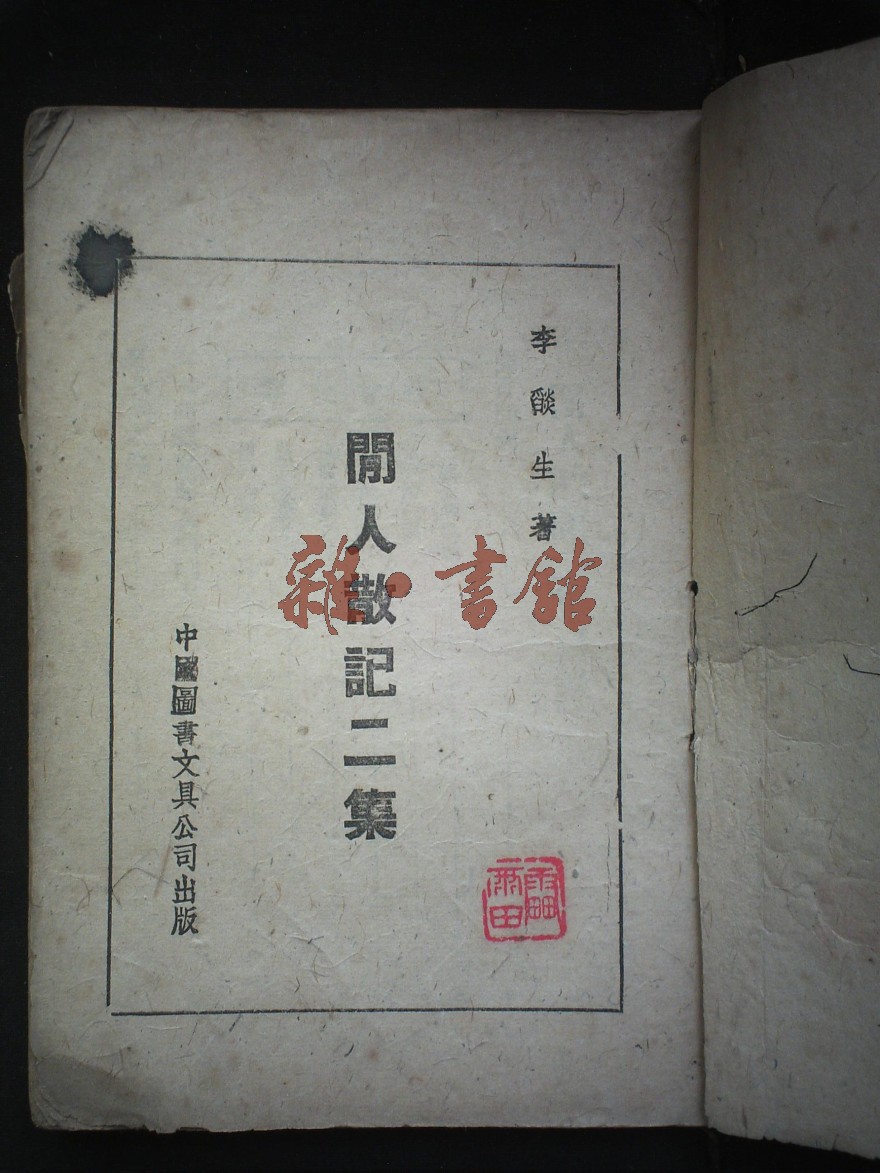 李燄生著
閒人散記二集
中國圖書文具公司出版
雜·書館